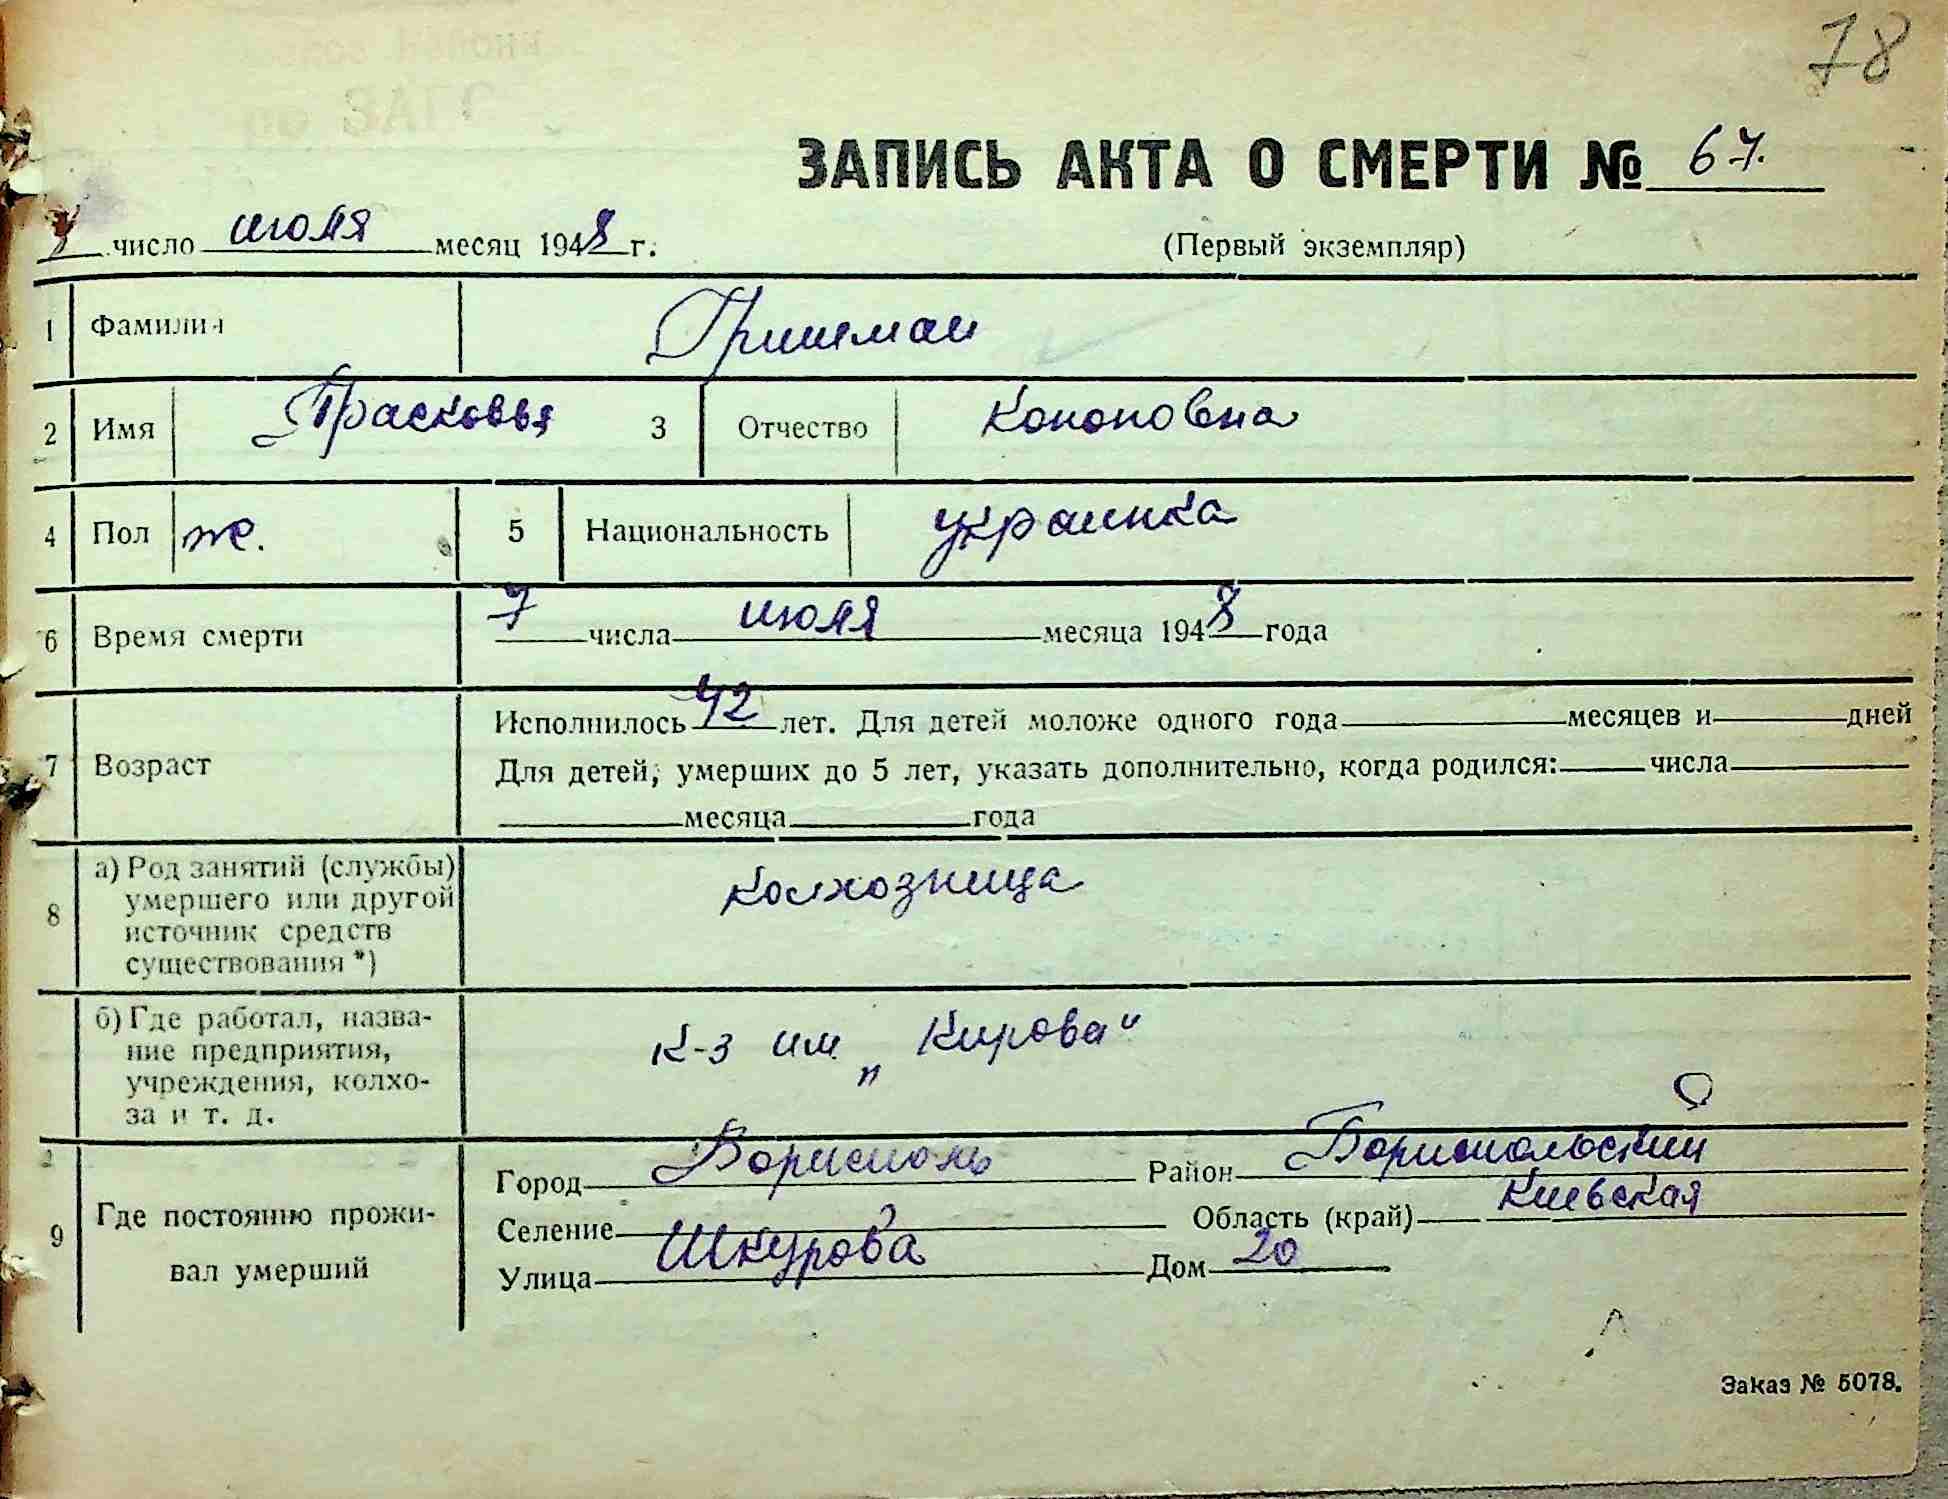 78
ЗАПИСЬ АКТА О СМЕРТИ № 67.
число июля месяц 1948 г.
(Первый экземпляр)
1 Фамилия Гришман
2 Имя Прасковья 3 Отчество Кононовна
4 Пол ж. 5 Национальность украинка
6 Время смерти 7 числа июля месяца 1948 года
7 Возраст
Исполнилось 42 лет. Для детей моложе одного года месяцев и дней
Для детей, умерших до 5 лет, указать дополнительно, когда родился: числа
месяца года
8 а) Род занятий (службы)
умершего или другой
источник средств
существования *)
колхозница
б) Где работал, назва-
ние предприятия,
учреждения, колхо-
за и т. д.
К-з им „Кирова“
9 Где постоянно прожи-
вал умерший
Город Борисполь Район Бориспольский
Селение Область (край) Киевская
Улица Шкурова Дом 20
Заказ № 5078.